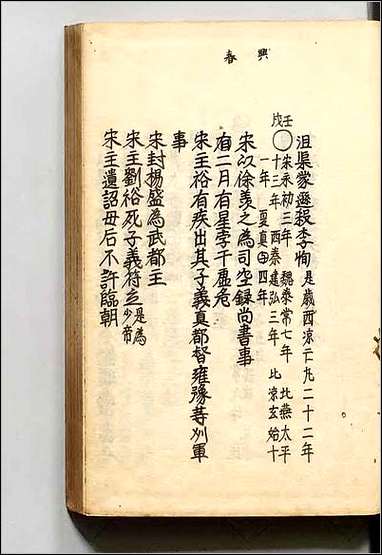 興春
沮渠蒙遜殺李恂 是歲西涼亡凡二十二年
壬戌 〇宋永初三年 魏泰常七年 北燕太平
十三年 西秦建弘三年 北涼玄始十
一年 夏真 四年
宋以徐羨之為司空録尚書事
二月有星孛于虛危
宋主裕有疾出其子義真都督雍豫等州軍
事
宋封楊盛為武都王
宋主劉裕死子義符立 是為少帝
宋主遺詔母后不許臨朝